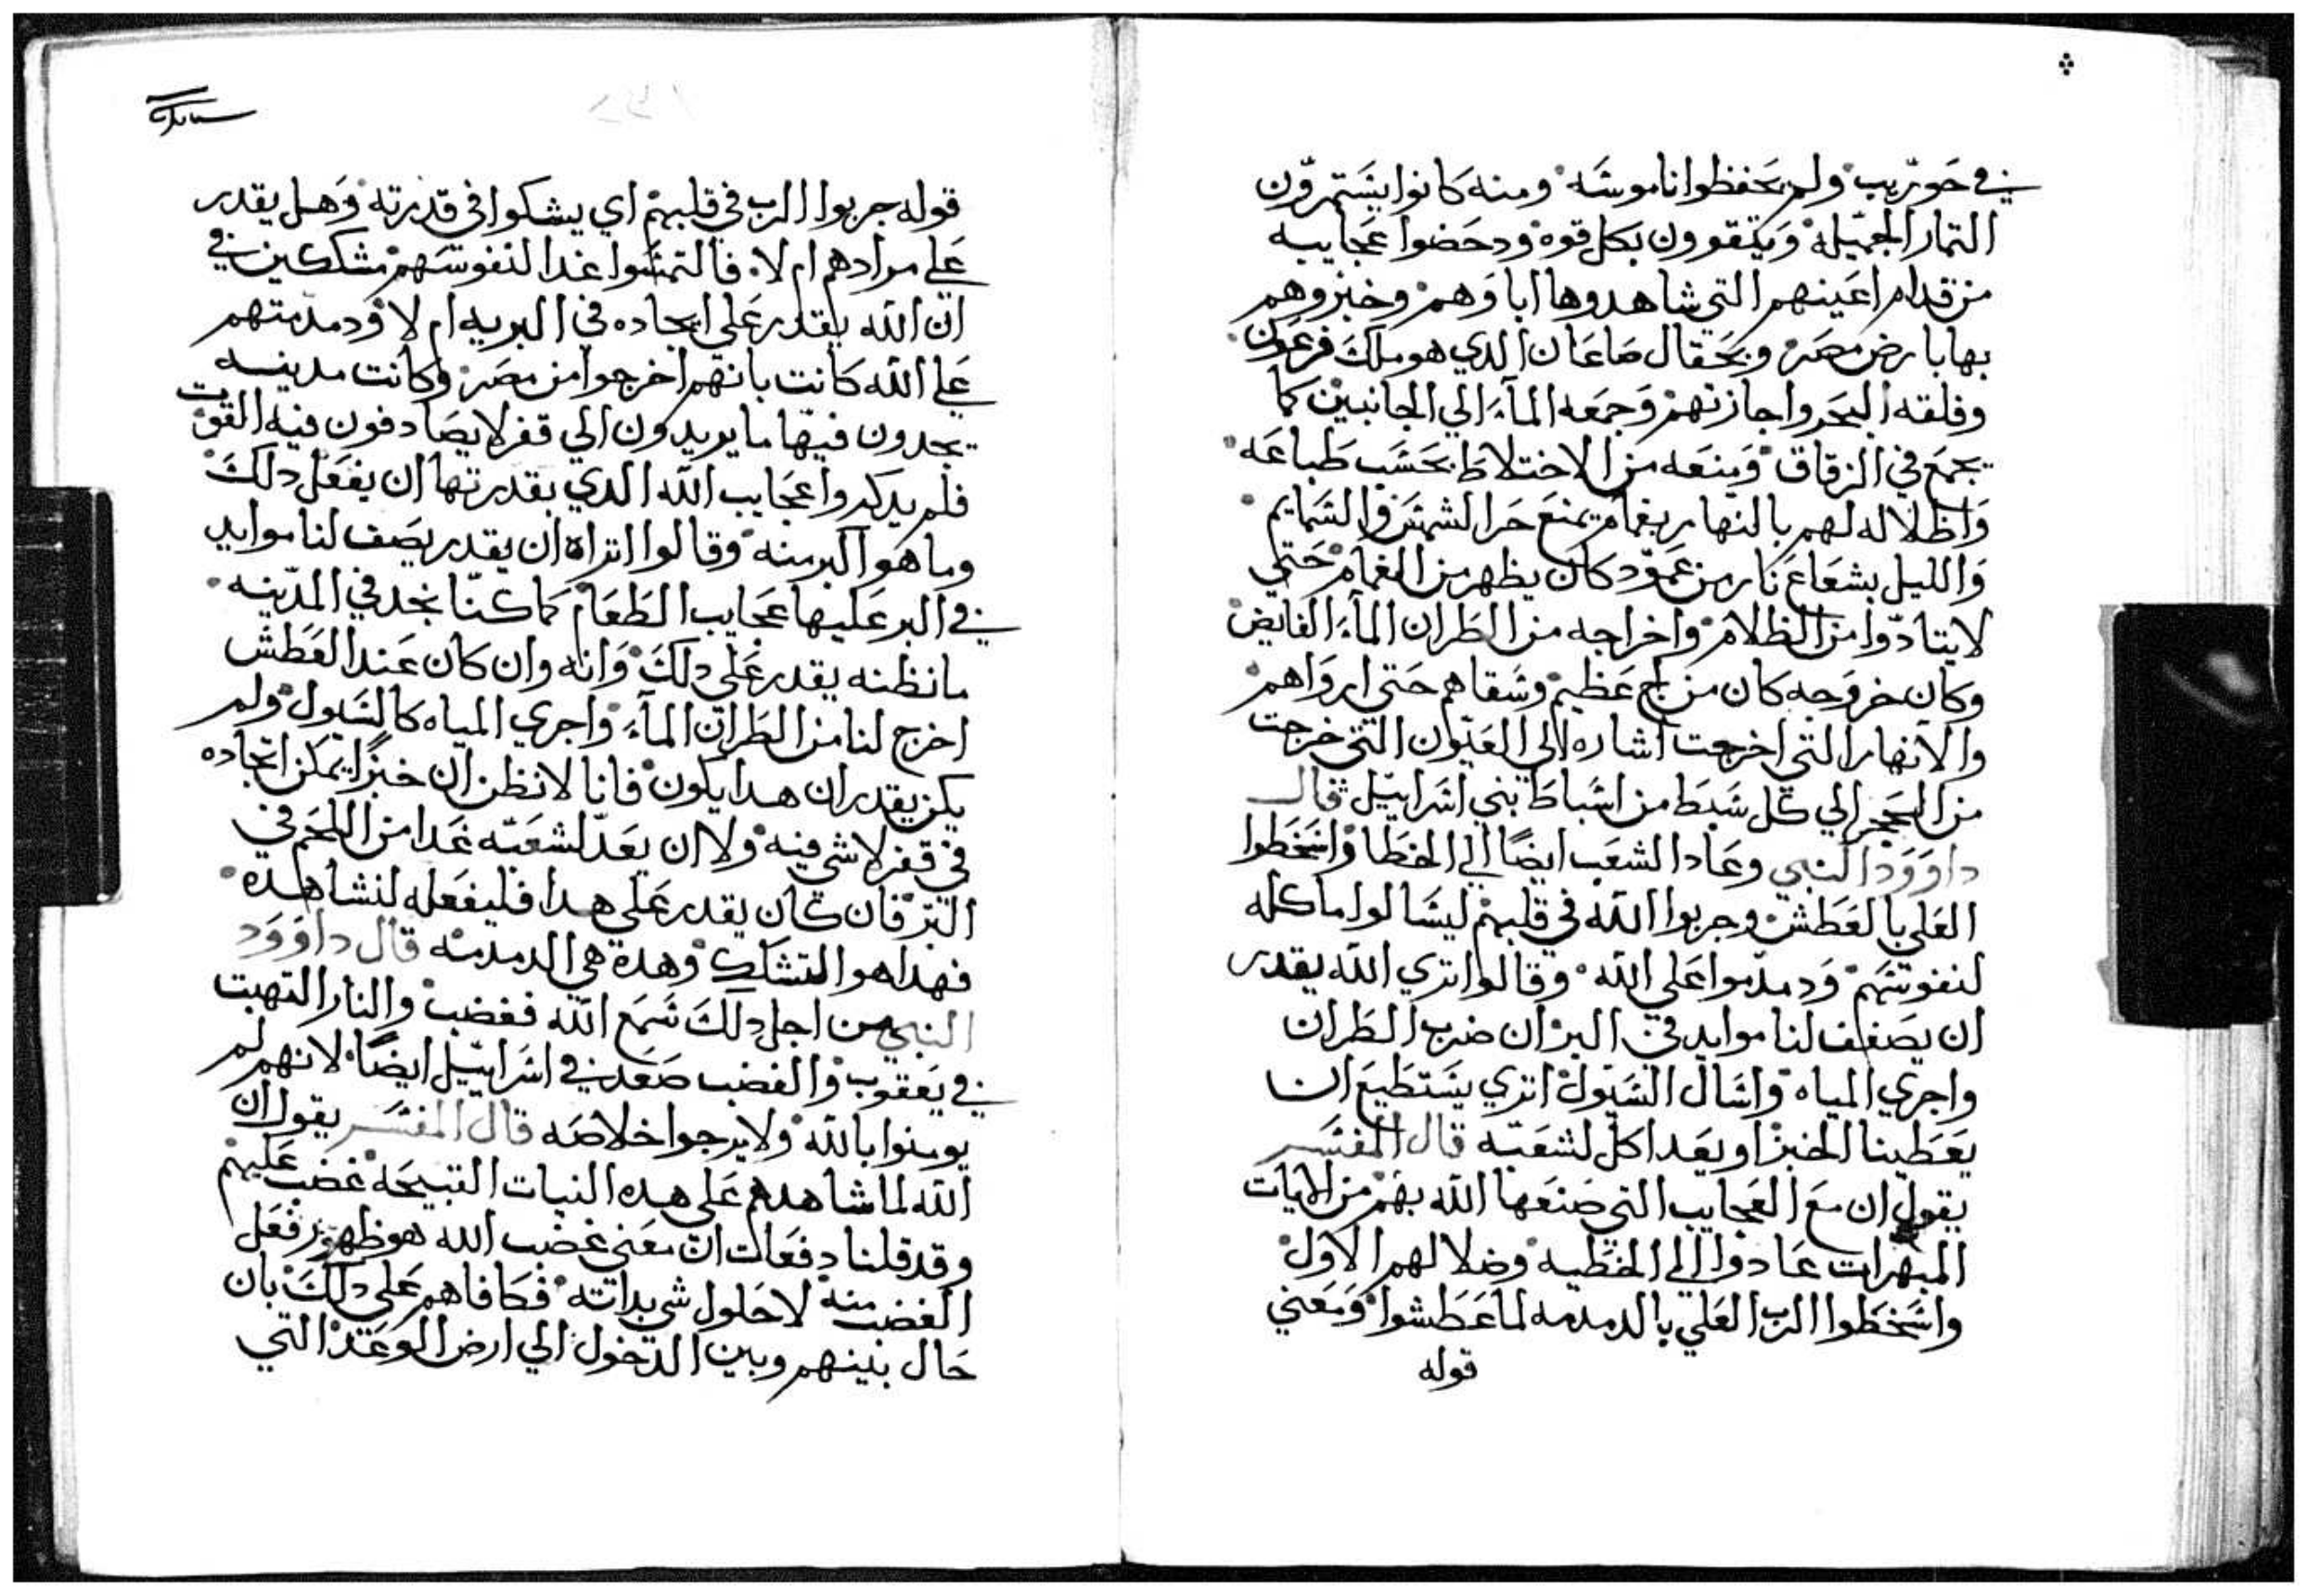 في حوريب ولم يحفظوا ناموسه ومنه كانوا يستمرون
الثمار الجميله ويتقوون بكل قوه ودحضوا عجايبه
من قدام اعينهم التي شاهدوها اباوهم وخبروهم
بها بارض مصر وبحقال صاعان الدي هو ملك فرعون
وفلقه البحر واجازتهم وجمعه الماء الي الجانبين كما
يجمع في الزقاق ومنعه من الاختلاط بحسب طباعه
واظلاله لهم بالنهار بغمام يمنع حر الشمس والسمايم
والليل بشعاع نار من عمود كان يظهر من الغمام حتي
لا يتادوا من الظلام واخراجه من الطران الماء الفايض
وكان خروجه كان من لج عظيم وسقاهم حتي ارواهم
والانهار التي اخرجت اشاره الي العيون التي خرجت
من الحجر الي كل سبط من اسباط بني اسراييل قال
داوود النبي وعاد الشعب ايضا الي الخطا واسخطوا
العلي بالعطش وجربوا الله في قلبهم ليسالوا ماكله
لنفوسهم ودمدموا علي الله وقالوا اتري الله يقدر
ان يصفف لنا موايد في البر ان ضرب الطران
واجري المياه واسال السيول اتري يستطيع ان
يعطينا الخبز او يعد اكل لشعبه قال المفسر
يقول ان مع العجايب التي صنعها الله بهم من الايات
المبهرات عادوا الي الخطيه وضلالهم الاول
واسخطوا الرب العلي بالدمدمه لما عطشوا ومعني
قوله
قوله جربوا الرب في قلبهم اي يشكوا في قدرته وهل يقدر
علي مرادهم ام لا فالتمسوا غدا لنفوسهم مشككين في
ان الله يقدر علي ايجاده في البريه ام لا ودمدمتهم
علي الله كانت بانهم اخرجوا من مصر وكانت مدينه
يجدون فيها ما يريدون الي قفر لا يصادفون فيه القوت
فلم يدكروا عجايب الله الدي بقدرتها ان يفعل دلك
وما هو اكبر منه وقالوا اتراه ان يقدر يصف لنا موايد
في البر عليها عجايب الطعام كما كنا نجد في المدينه
ما نظنه يقدر علي دلك وانه وان كان عند العطش
اخرج لنا من الطران الماء واجري المياه كالسيول ولم
يكن يقدر ان هدا يكون فانا لا نظن ان خبزا يمكن اتخاده
في قفر لا شي فيه ولا ان يعد لشعبه غدا من اللحم في
البر فان كان يقدر علي هدا فليفعله لنشاهده
فهدا هو التشكك وهده هي الدمدمه قال داوود
النبي من اجل دلك سمع الله فغضب والنار التهبت
في يعقوب والغضب صعد في اسراييل ايضا لانهم لم
يومنوا بالله ولا يرجوا خلاصه قال المفسر يقول ان
الله لما شاهدهم علي هده النيات القبيحه غضب عليهم
وقد قلنا دفعات ان معني غضب الله هو ظهور فعل
الغضب منه لا حلول شي بداته فكافاهم علي دلك بان
حال بينهم وبين الدخول الي ارض الوعد التي